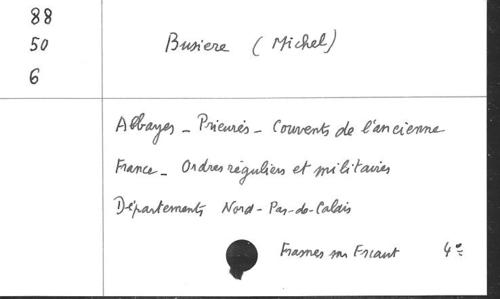 88
50
6
Busiere (Michel)
Abbayes - Prieurés - Couvents de l'ancienne
France - Ordres réguliers et militaires
Départements Nord - Pas-de-Calais
Frasnes sur Escaut 4°